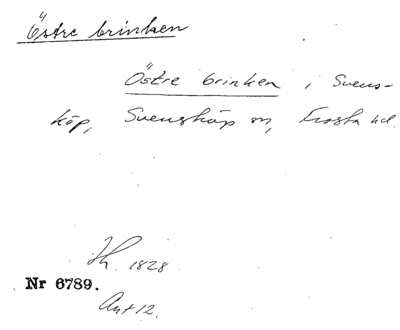 Östre brinken
Östre brinken i Svens-
köp, Svensköp sn, Frosta hd.
1828
Nr 6789.
Ant 12.